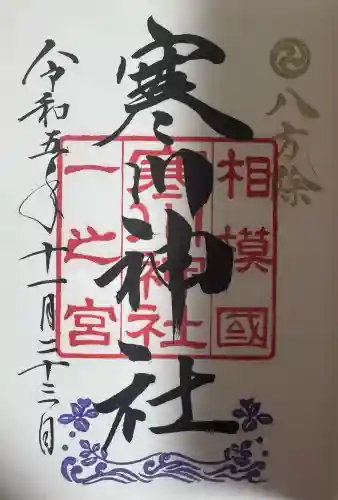 八方除
相模國
寒川神社
一之宮
寒川神社
令和五年十一月二十三日